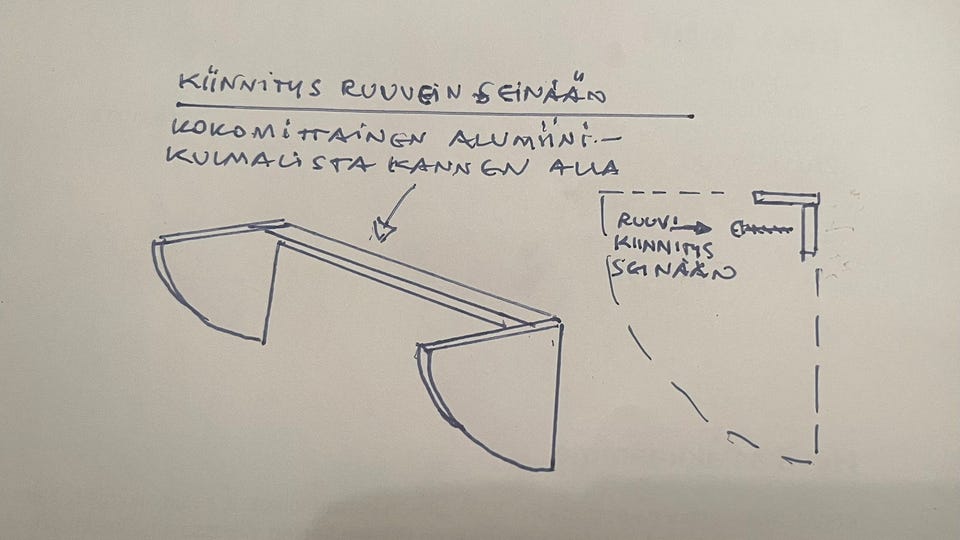 KIINNITYS RUUVEIN SEINÄÄN
KOKOMITTAINEN ALUMIINI-
KULMALISTA KANNEN ALLA
RUUVI
KIINNITYS
SEINÄÄN